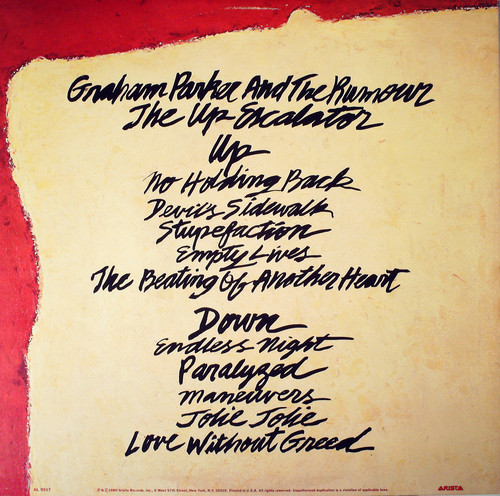 Graham Parker And The Rumour
The Up Escalator
Up
No Holding Back
Devil's Sidewalk
Stupefaction
Empty Lives
The Beating Of Another Heart
Down
Endless Night
Paralyzed
Maneuvers
Jolie Jolie
Love Without Greed
AL 9517
℗ & © 1980 Arista Records, Inc., 6 West 57th Street, New York, N.Y. 10019. Printed in U.S.A. All rights reserved. Unauthorized duplication is a violation of applicable laws.
ARISTA